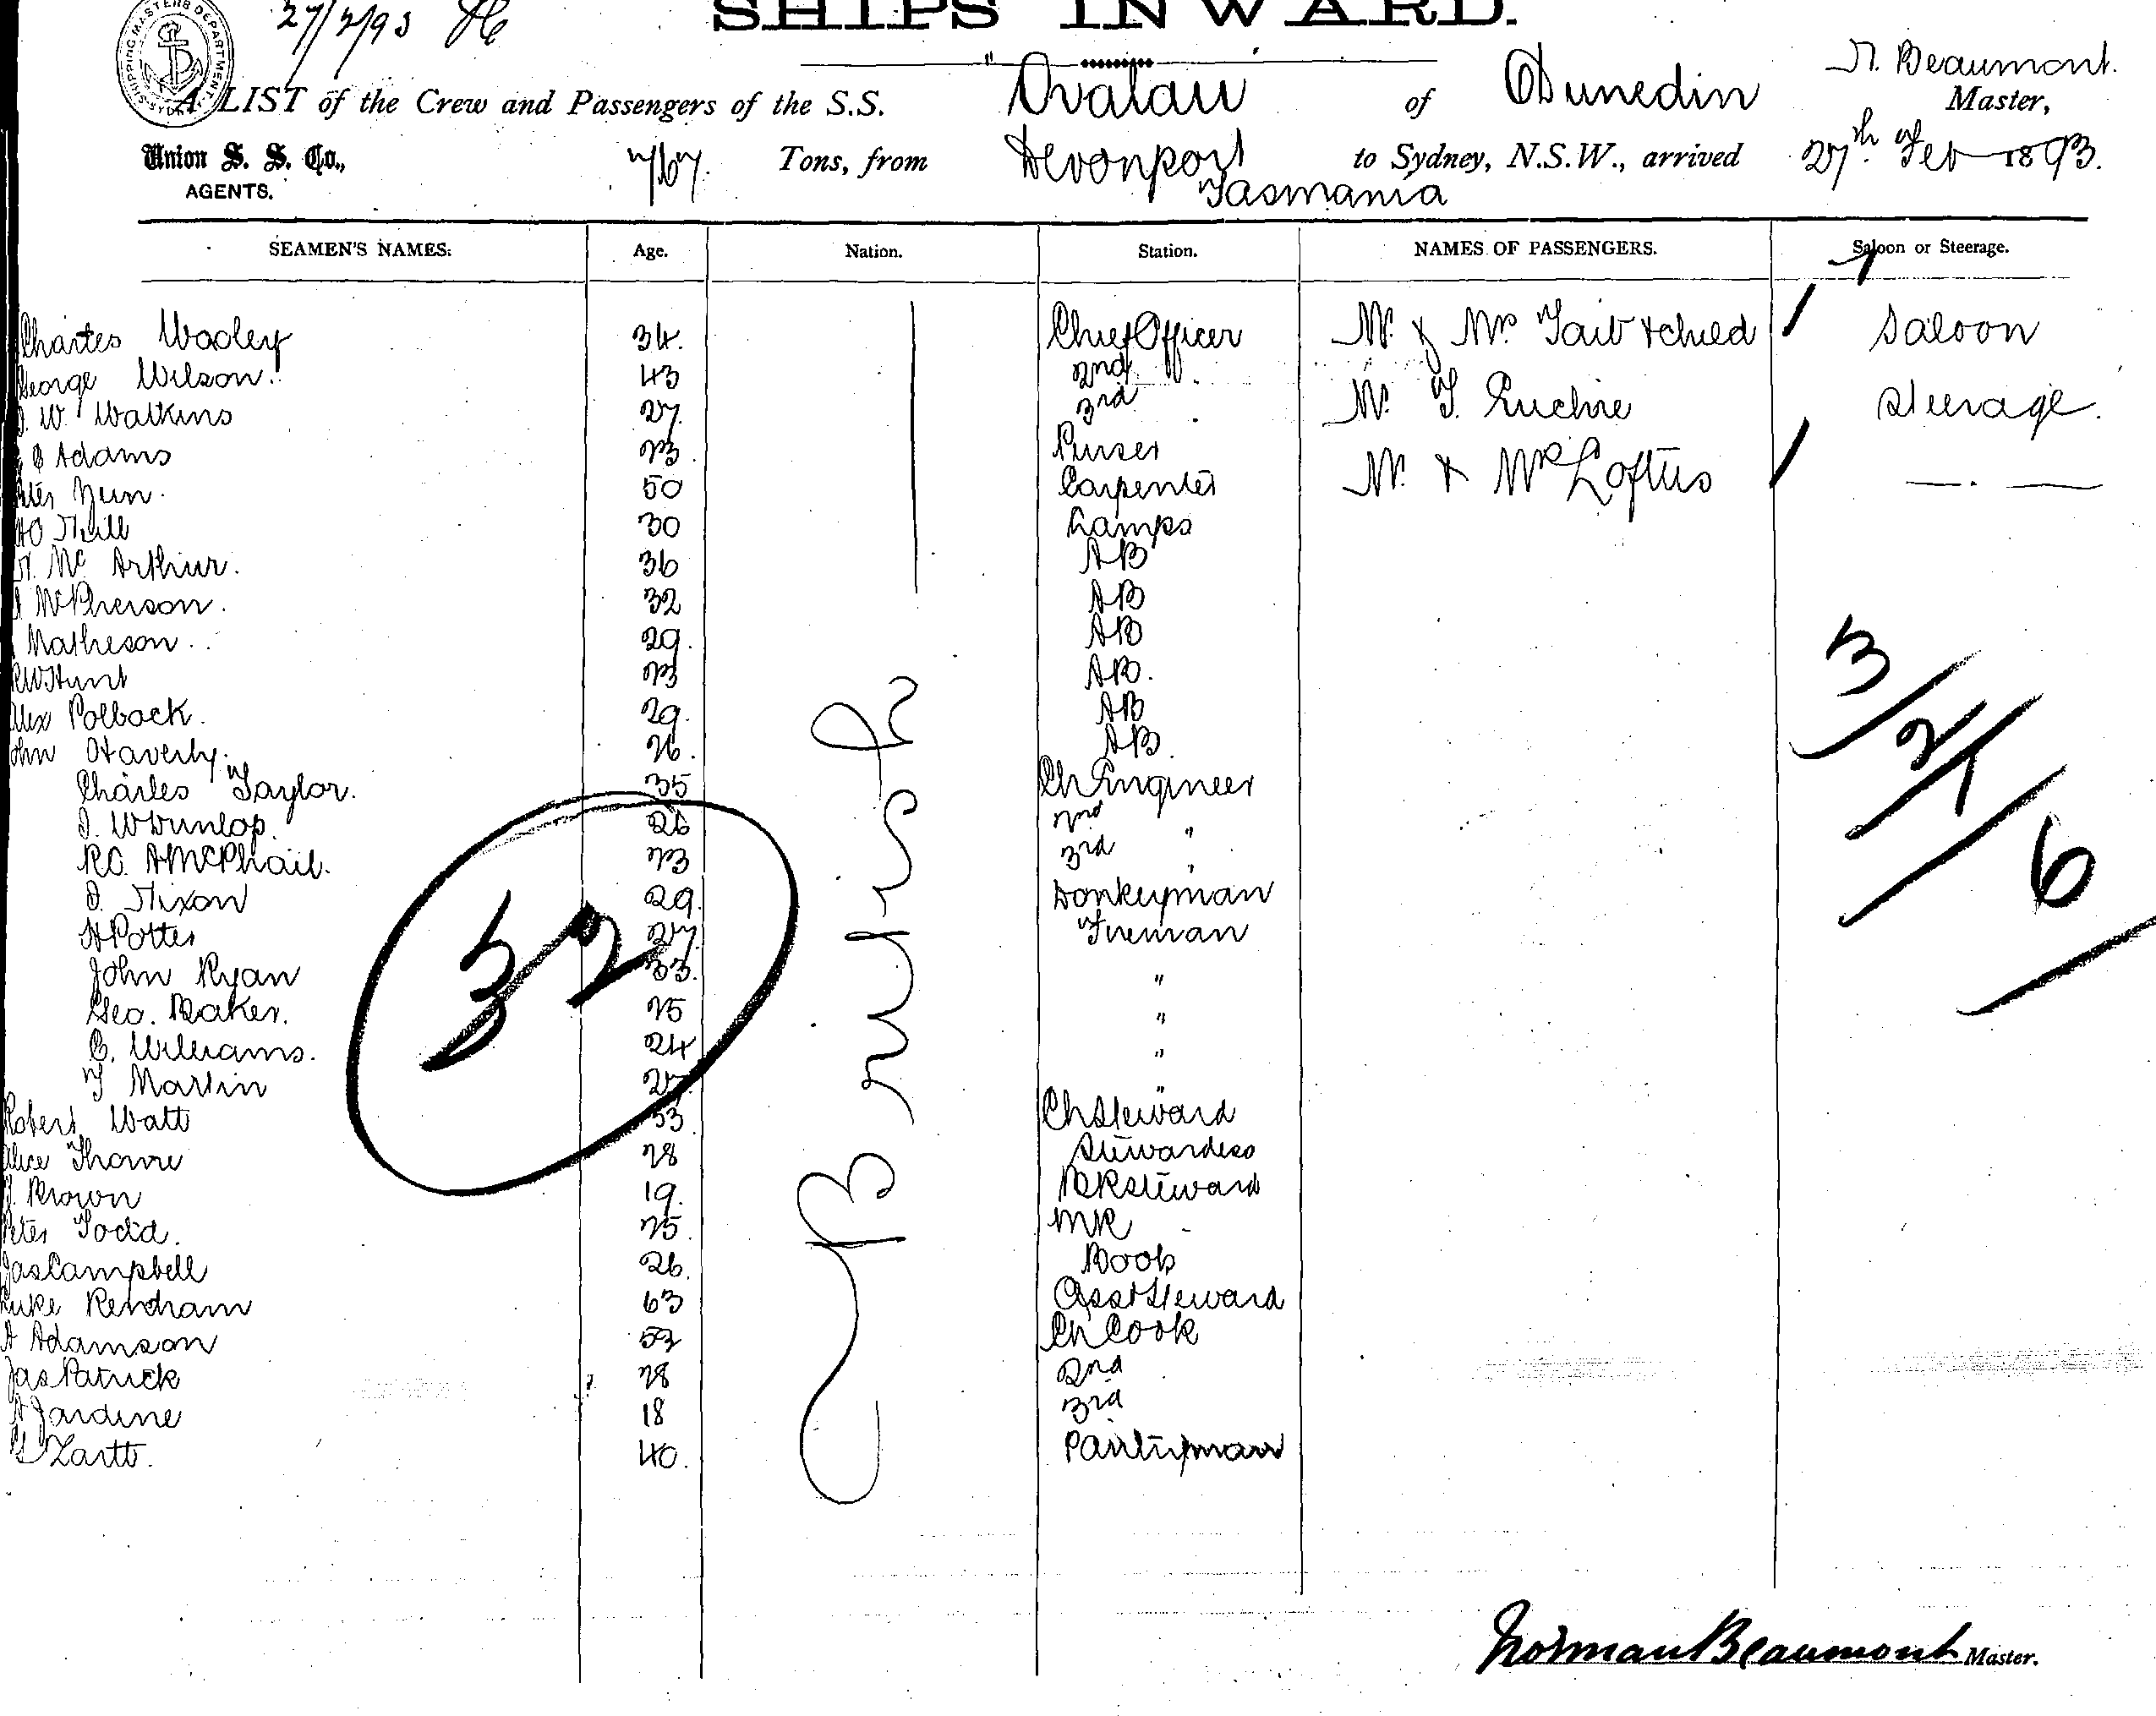 27/2/93
SHIPS INWARD.
SHIPPING MASTERS DEPARTMENT SYDNEY
A LIST of the Crew and Passengers of the S.S. "Ovalau of Dunedin N. Beaumont. Master,
Union S. S. Co., AGENTS. 767. Tons, from Devonport Tasmania to Sydney, N.S.W., arrived 27th Feb 1893.
SEAMEN'S NAMES. Age. Nation. Station. NAMES OF PASSENGERS. Saloon or Steerage.
Charles Wooley 34. Chief Officer Mr. & Mrs Tait & child Saloon
George Wilson. 43 2nd "
W. Watkins 27. 3rd Mr. T. Steerage.
Adams 23. Purser
Peter 50 Carpenter Mr. & Mrs Loftus — . —
30 Lamps
N. Mc Arthur. 36 AB
McPherson. 32 AB
Matheson. 29. AB
R W Hunt 23 AB.
Alex Pollock. 29. AB
John Haverly. 26. AB
Charles Taylor. 35 Ch Engineer
J. W Dunlop. 26 2nd "
R.C. A McPhail. 23 3rd "
J. Nixon 29. Donkeyman
H Potter 27. Fireman
John Ryan 33. "
Geo. Baker. 25 "
C. Williams. 24 "
T Martin "
Robert Watt 53 Ch Steward
Alice 28 Stewardess
J. Brown 19. Bk Steward
Peter Todd. 25. MR -
Jas Campbell 26.
Luke Rendham 63 Asst Steward
A Adamson 52 Ch Cook
Jas Patrick 28 2nd
A Jardine 18 3rd
40. Pantryman
British
32
3/2/1/6
Norman Beaumont Master.